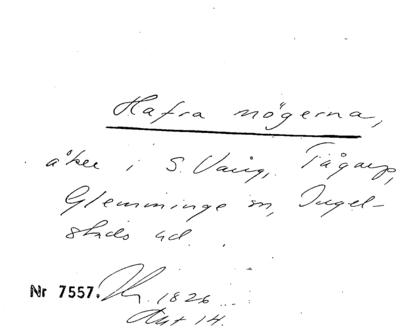 Hafra mögerna,
åker i S. Vång, Tågarp,
Glemminge sn, Ingel-
stads hd.
Nr 7557. 1826
Akt 14.